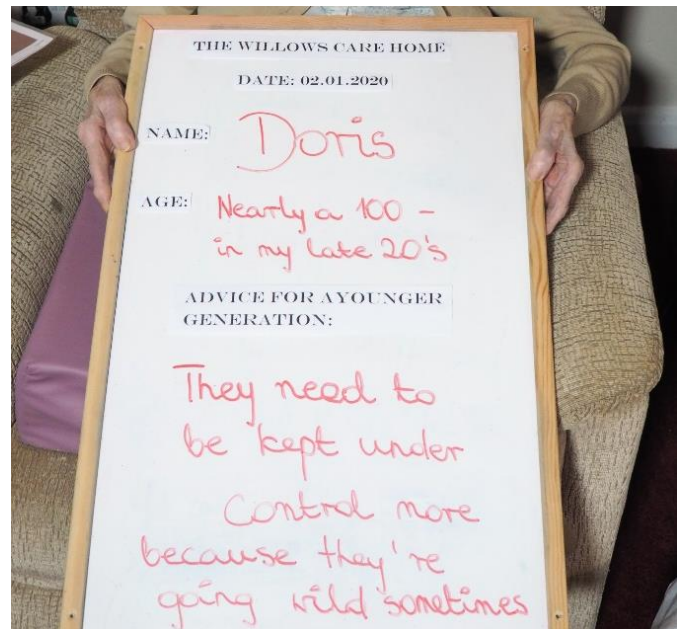 THE WILLOWS CARE HOME
DATE: 02.01.2020
NAME: Doris
AGE: Nearly a 100 -
in my late 20's
ADVICE FOR AYOUNGER
GENERATION:
They need to
be kept under
Control more
because they're
going wild sometimes